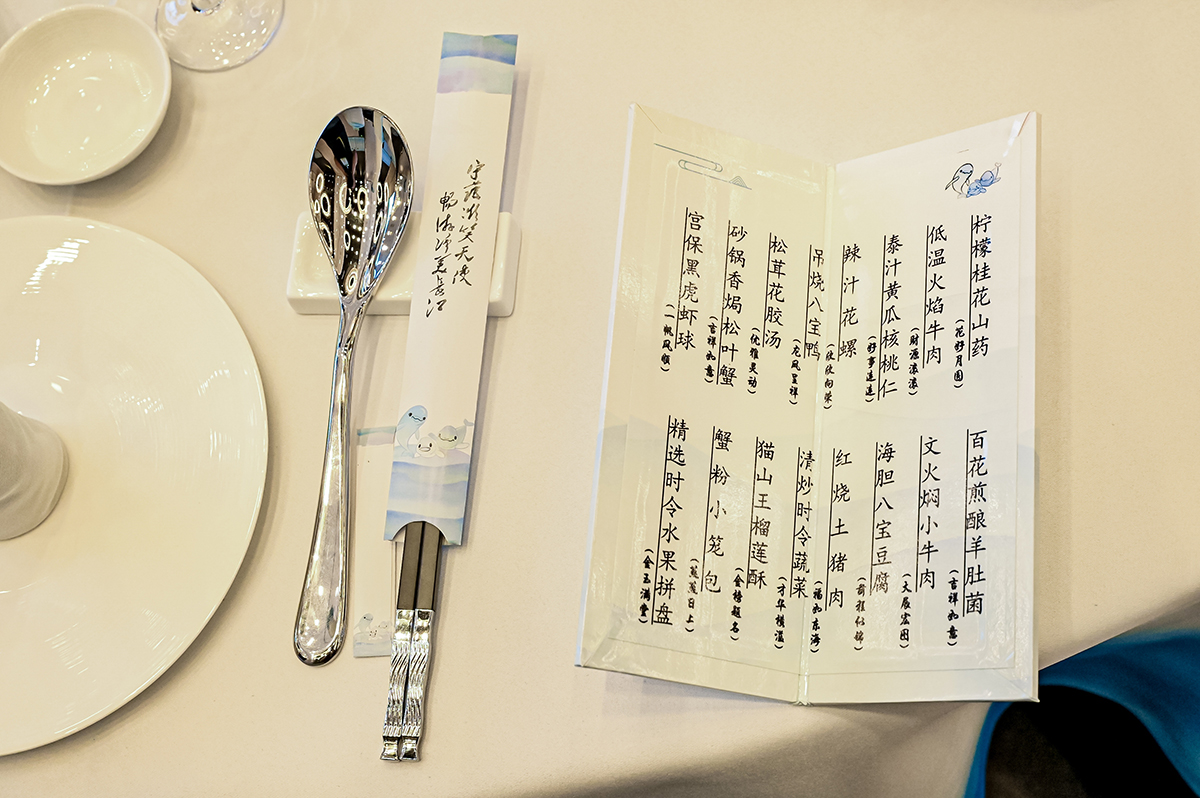 守護微笑天使
畅游净美長江
柠檬桂花山药
(花好月圆)
低温火焰牛肉
(财源滚滚)
泰汁黄瓜核桃仁
(好事连连)
辣汁花螺
(欣欣向荣)
吊烧八宝鸭
(龙凤呈祥)
松茸花胶汤
(优雅灵动)
砂锅香焗松叶蟹
(吉祥如意)
宫保黑虎虾球
(一帆风顺)
百花煎酿羊肚菌
(吉祥如意)
文火焖小牛肉
(大展宏图)
海胆八宝豆腐
(前程似锦)
红烧土猪肉
(福如东海)
清炒时令蔬菜
(才华横溢)
猫山王榴莲酥
(金榜题名)
蟹粉小笼包
(蒸蒸日上)
精选时令水果拼盘
(金玉满堂)